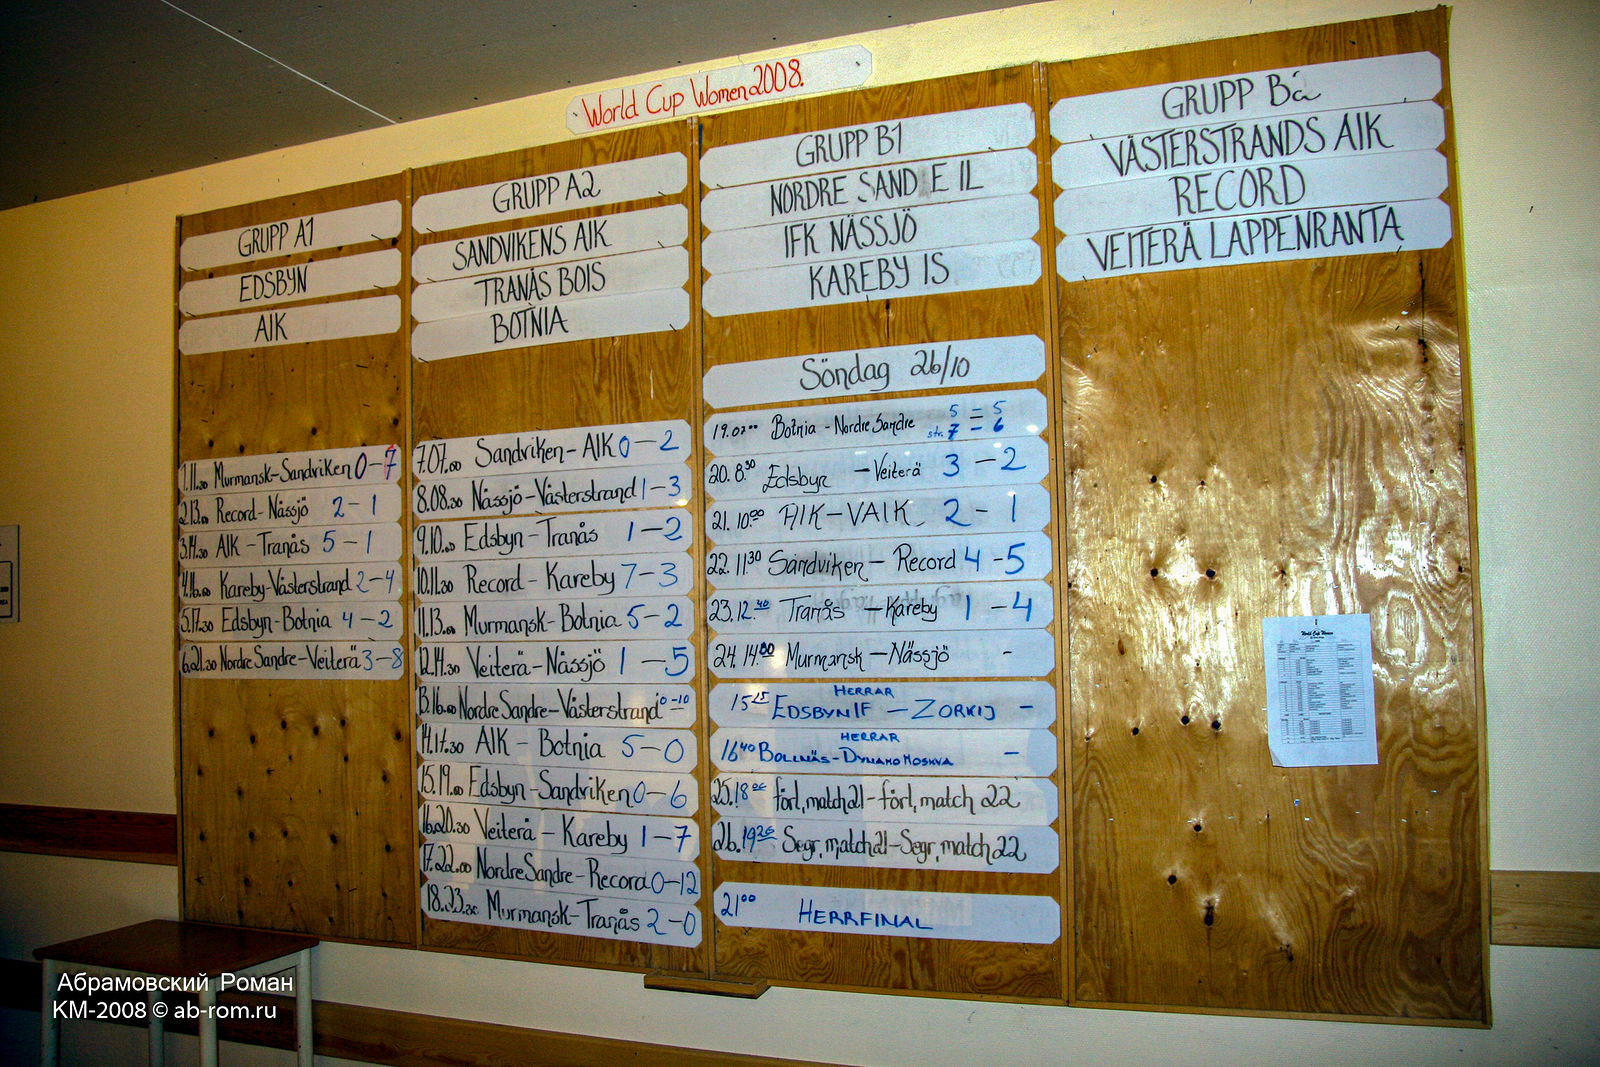 World Cup Women 2008.
GRUPP A1
EDSBYN
AIK
1.11.30 Murmansk-Sandviken 0-7
2.13.00 Record-Nässjö 2-1
3.14.30 AIK-Tranås 5-1
4.16.00 Kareby-Västerstrand 2-4
5.17.30 Edsbyn-Botnia 4-2
6.21.30 Nordre Sandre-Veiterä 3-8
GRUPP A2
SANDVIKENS AIK
TRANÅS BOIS
BOTNIA
7.07.00 Sandviken-AIK 0-2
8.08.30 Nässjö-Västerstrand 1-3
9.10.00 Edsbyn-Tranås 1-2
10.11.30 Record-Kareby 7-3
11.13.00 Murmansk-Botnia 5-2
12.14.30 Veiterä-Nässjö 1-5
13.16.00 Nordre Sandre-Västerstrand 0-10
14.17.30 AIK-Botnia 5-0
15.19.00 Edsbyn-Sandviken 0-6
16.20.30 Veiterä-Kareby 1-7
17.22.00 Nordre Sandre-Record 0-12
18.23.30 Murmansk-Tranås 2-0
GRUPP B1
NORDRE SAND E IL
IFK NÄSSJÖ
KAREBY IS
Söndag 26/10
19.07.00 Botnia-Nordre Sandre 5=5
str. 7-6
20.8.30 Edsbyn-Veiterä 3-2
21.10.00 AIK-VAIK 2-1
22.11.30 Sandviken-Record 4-5
23.12.40 Tranås-Kareby 1-4
24.14.00 Murmansk-Nässjö -
HERRAR
15.15 EDSBYN IF - ZORKIJ -
HERRAR
16.40 BOLLNÄS-DYNAMO MOSKVA -
25.18 förl, match 21-förl, match 22
26.19 Segr, match 21-Segr, match 22
21.00 HERRFINAL
GRUPP B2
VÄSTERSTRANDS AIK
RECORD
VEITERÄ LAPPENRANTA
World Cup Women
Абрамовский Роман
КМ-2008 © ab-rom.ru